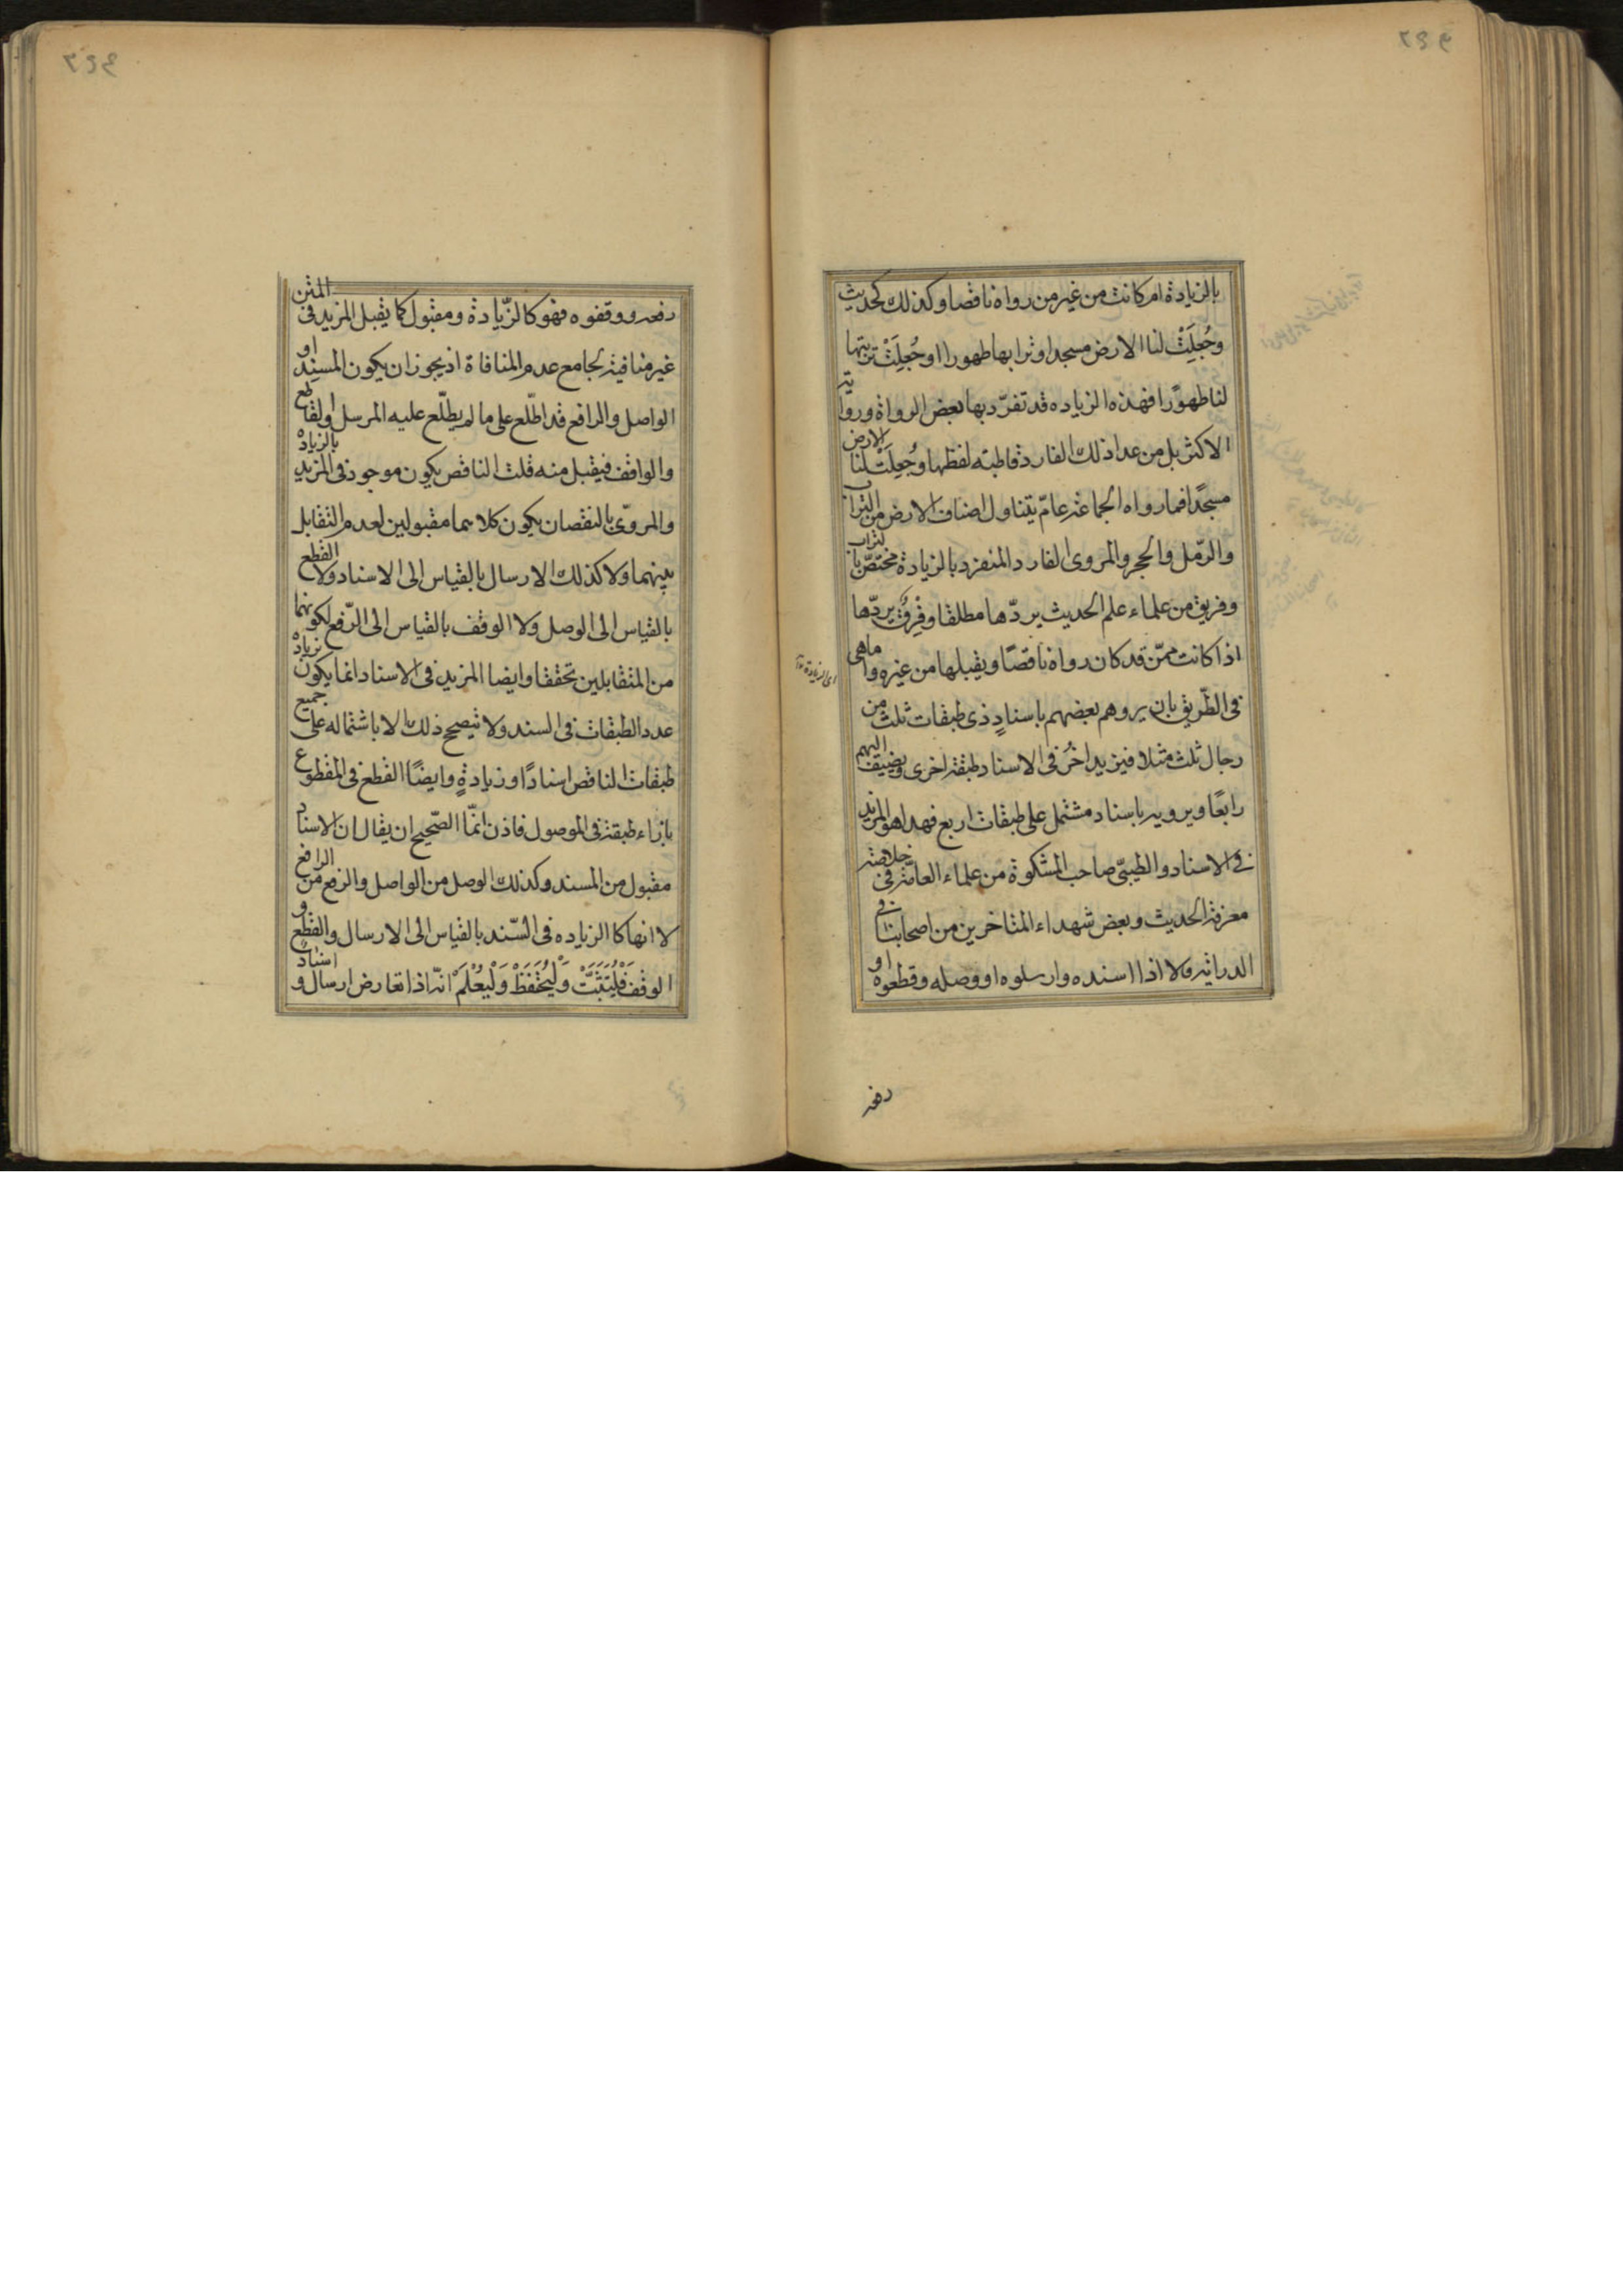 بالزيادة ام كانت من غير من رواه ناقصا وكذلك كحديث
وجُعِلَتْ لنا الارض مسجدا وترابها طهورا او جُعِلَتْ تربتها
لنا طهورًا فهذه الزياده قد تفرّد بها بعض الرواة ورواية
الاكثر بل من عدا ذلك الفارد قاطبته لفظها وجُعِلَتْ لنا الارض
مسجدًا فما رواه الجماعة عامّ يتناول اصناف الارض من التراب
والرّمل والحجر والمروى الفارد المنفرد بالزيادة مختصّ بالتراب
وفريق من علماء علم الحديث يردّها مطلقا وفِرَقٌ يردّها
اذا كانت ممّن قد كان رواه ناقصًا ويقبلها من غيره واما هى
فى الطّريق بان يروهم بعضهم باسنادٍ ذى طبقات ثلث من
رجال ثلث مثلا فيزيد اخرُ فى الاسناد طبقة اخرى ويضيف اليهم
رابعًا ويرويه باسناد مشتمل على طبقات اربع فهذا هو المزيد
فى الاسناد والطيبىّ صاحب المشكوة من علماء العامّة فى خلاصته
معرفة الحديث وبعض شهداء المتاخرين من اصحابنا فى
الدراية ولا اذا اسنده وارسلوه او وصله وقطعوه او
رفعه
اى الزيادة
رفعه ووقفوه فهو كالزّيادة ومقبول كما يقبل المزيد فى المتن
غير منافية لجامع عدم المنافاة اذ يجوز ان يكون المسنِد او
الواصل والرافع قد اطّلع على ما لم يطّلع عليه المرسل او القاطع
والواقف فيقبل منه قلت الناقص يكون موجود فى المزيد بالزيادة
والمروّى بالنقصان يكون كلاهما مقبولين لعدم التقابل
بينهما ولا كذلك الارسال بالقياس الى الاسناد ولا القطع
بالقياس الى الوصل ولا الوقف بالقياس الى الرّفع لكونهما
من المتقابلين تحققا وايضا المزيد فى الاسناد انما يكون بزيادة
عدد الطبقات فى السند ولا تيصحح ذلك الا باشتماله على جميع
طبقات الناقص اسنادًا وزيادةٍ وايضًا القطع فى المقطوع
بازاء طبقة فى الموصول فاذن انمّا الصّحيح ان يقال ان الاسناد
مقبول من المسند وكذلك الوصل من الواصل والرفع من الرافع
لا انها كالزياده فى السّند بالقياس الى الارسال والقطع و
الوقف فَلْيُتَثَبَّتْ وَلْيُحْفَظْ وَلْيُعْلَمْ انّه اذا تعارض ارسال واسنادٌ